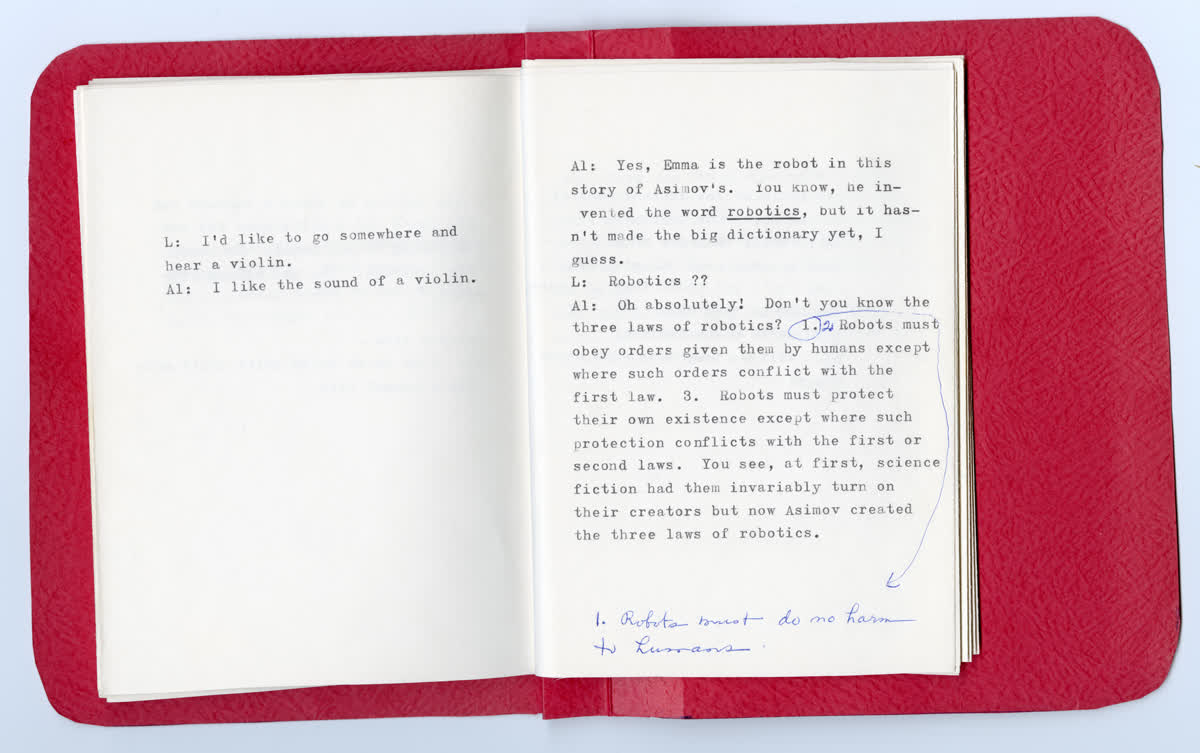 L: I'd like to go somewhere and
hear a violin.
Al: I like the sound of a violin.
Al: Yes, Emma is the robot in this
story of Asimov's. You know, he in-
vented the word robotics, but it has-
n't made the big dictionary yet, I
guess.
L: Robotics ??
Al: Oh absolutely! Don't you know the
three laws of robotics? 1. 2. Robots must
obey orders given them by humans except
where such orders conflict with the
first law. 3. Robots must protect
their own existence except where such
protection conflicts with the first or
second laws. You see, at first, science
fiction had them invariably turn on
their creators but now Asimov created
the three laws of robotics.
1. Robots must do no harm
to humans.